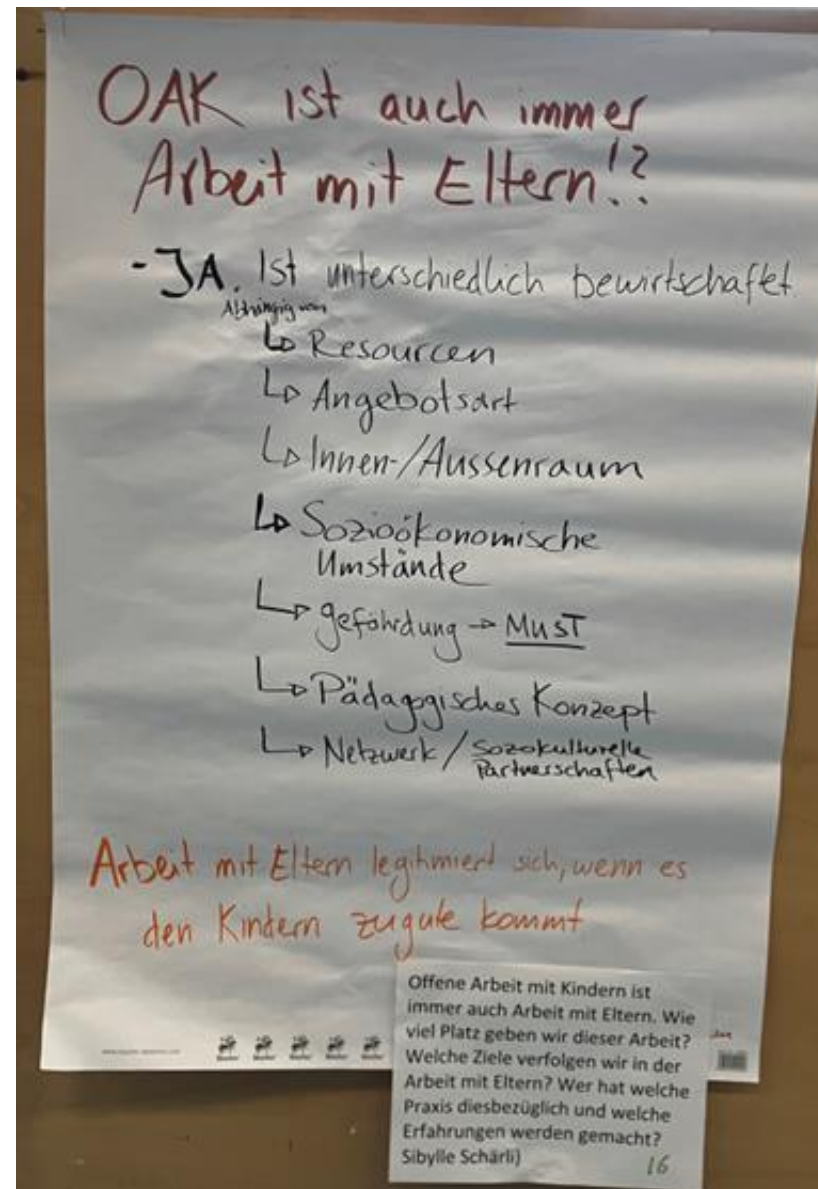 OAK ist auch immer
Arbeit mit Eltern!?
- JA. Ist unterschiedlich bewirtschaftet
Abhängig von
↳ Resourcen
↳ Angebotsart
↳ Innen-/Aussenraum
↳ Sozioökonomische
Umstände
↳ gefährdung → MUST
↳ Pädagogisches Konzept
↳ Netzwerk / Sozokulturelle
Partnerschaften
Arbeit mit Eltern legitimiert sich, wenn es
den Kindern zugute kommt
Offene Arbeit mit Kindern ist
immer auch Arbeit mit Eltern. Wie
viel Platz geben wir dieser Arbeit?
Welche Ziele verfolgen wir in der
Arbeit mit Eltern? Wer hat welche
Praxis diesbezüglich und welche
Erfahrungen werden gemacht?
Sibylle Schärli)
16